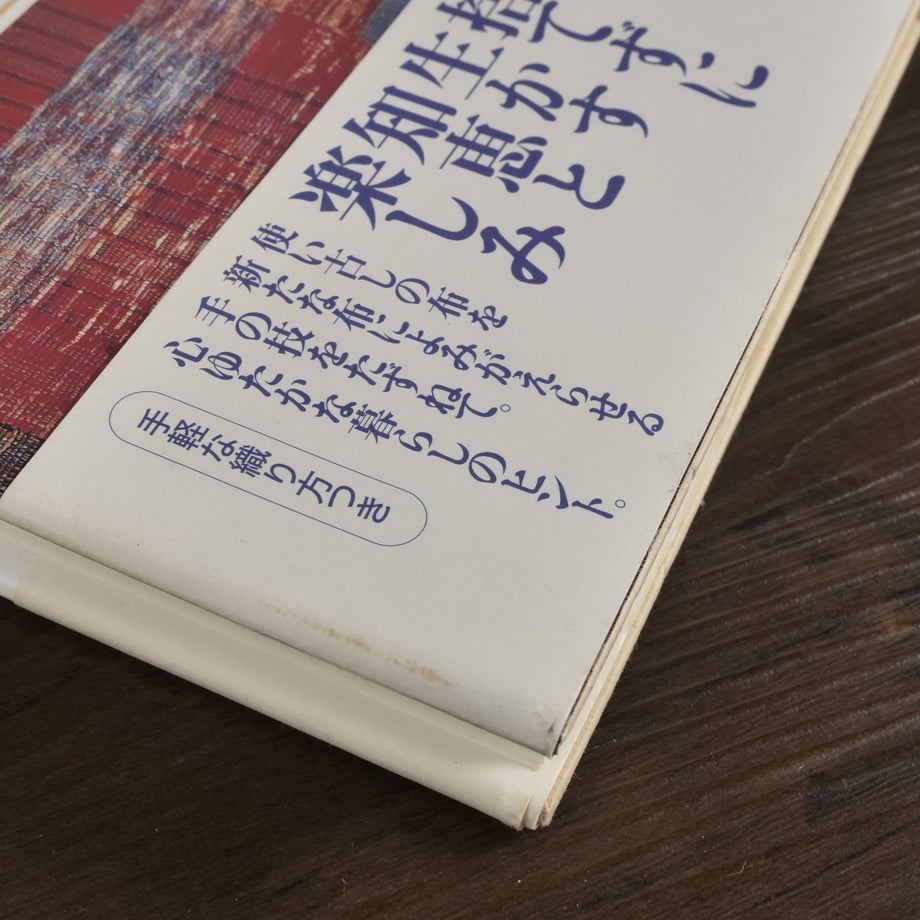 捨てずに
生かす
知恵と
楽しみ
使い古しの布を
新たな布によみがえらせる
手の技をたずねて。
心ゆたかな暮らしのヒント。
手軽な織り方つき